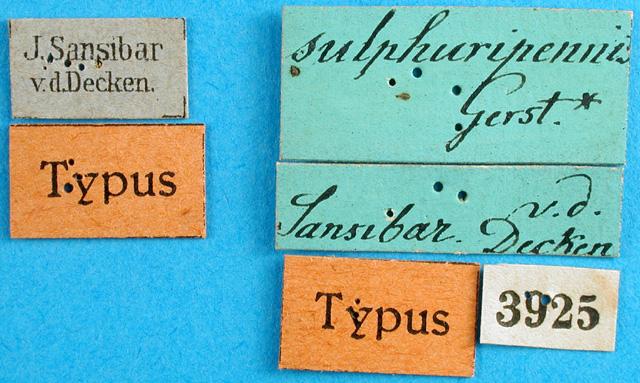 J. Sansibar
v.d. Decken.
Typus
sulphuripennis
Gerst.*
Sansibar. v.d.
Decken
Typus
3925